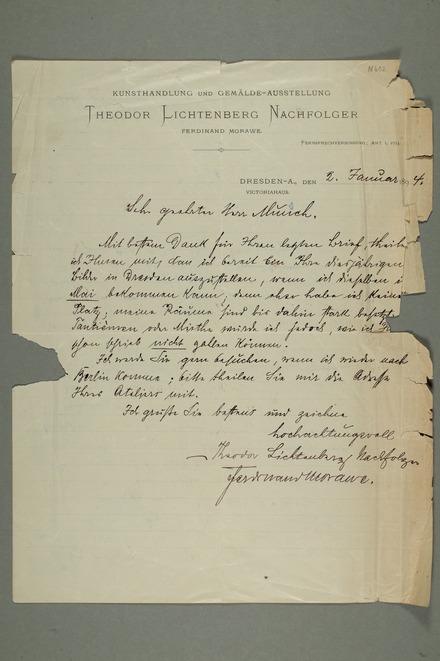 N 602
KUNSTHANDLUNG UND GEMÄLDE-AUSSTELLUNG
THEODOR LICHTENBERG NACHFOLGER
FERDINAND MORAWE.
FERNSPRECHVERBINDUNG: AMT I,
DRESDEN-A., DEN 2. Januar 1894.
VICTORIAHAUS.
Sehr geehrter Herr Munch.
Mit bestem Dank für Ihren letzten Brief, theile
ich Ihnen mit, dass ich bereit bin Ihre diesjährigen
Bilder in Dresden auszustellen, wenn ich dieselben i
Mai bekommen kann, denn eher habe ich keinen
Platz; meine Räume sind bis dahin stark besetzt.
Tantiemen oder Miethe würde ich jedoch, wie ich
schon schrieb nicht zahlen können.
Ich werde Sie gern besuchen, wenn ich wieder nach
Berlin komme; bitte theilen Sie mir die Adresse
Ihres Ateliers mit.
Ich grüße Sie bestens und zeichne
hochachtungsvoll
Theodor Lichtenberg Nachfolger
Ferdinand Morawe.